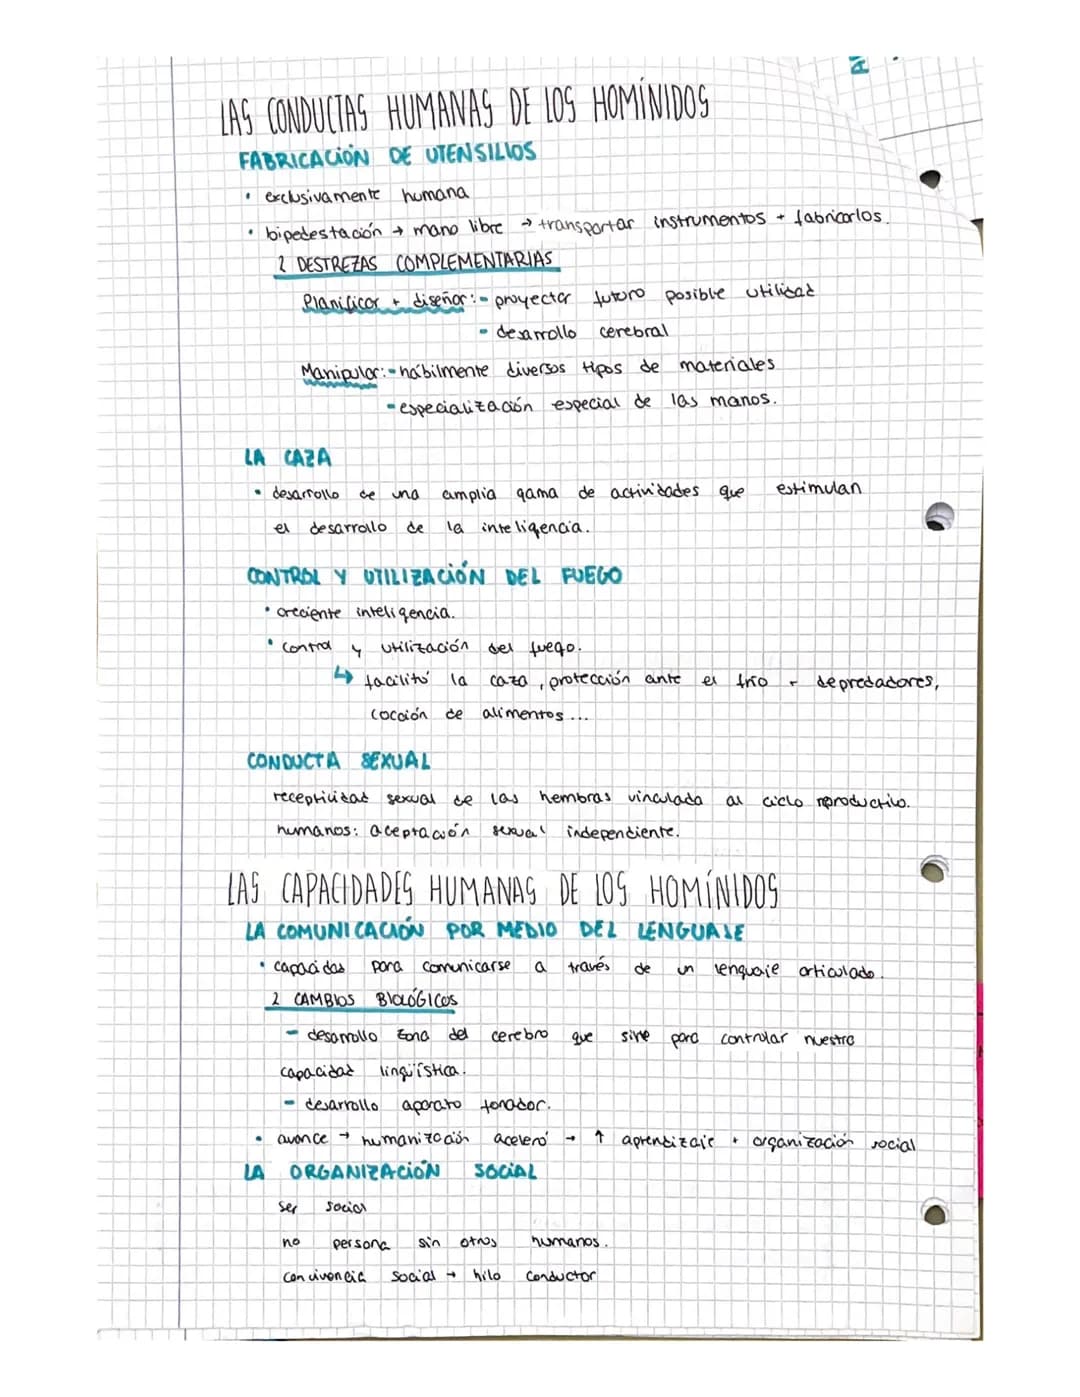 LAS CONDUCTAS HUMANAS DE LOS HOMÍNIDOS
FABRICACIÓN DE UTENSILIOS
• exclusivamente humana
• bipedestación → mano libre → transportar instrumentos + fabricarlos.
2 DESTREZAS COMPLEMENTARIAS
Planificar + diseñar: - proyectar futuro posible utilidad
- desarrollo cerebral
Manipular: - hábilmente diversos tipos de materiales
- especialización especial de las manos.
LA CAZA
• desarrollo de una amplia gama de actividades que estimulan
el desarrollo de la inteligencia.
CONTROL Y UTILIZACIÓN DEL FUEGO
• creciente inteligencia.
• control y utilización del fuego.
↳ facilitó la caza, protección ante el frío + depredadores,
cocción de alimentos...
CONDUCTA SEXUAL
receptividad sexual de las hembras vinculada al ciclo reproductivo.
humanos: aceptación sexual independiente.
LAS CAPACIDADES HUMANAS DE LOS HOMÍNIDOS
LA COMUNICACIÓN POR MEDIO DEL LENGUAJE
• capacidas para comunicarse a través de un lenguaje articulado.
2 CAMBIOS BIOLÓGICOS
- desarrollo zona del cerebro que sirve para controlar nuestra
capacidad lingüística.
- desarrollo aparato fonador.
• avance → humanización aceleró → ↑ aprendizaje + organización social
LA ORGANIZACIÓN SOCIAL
ser social
no persona sin otros humanos.
convivencia social → hilo conductor